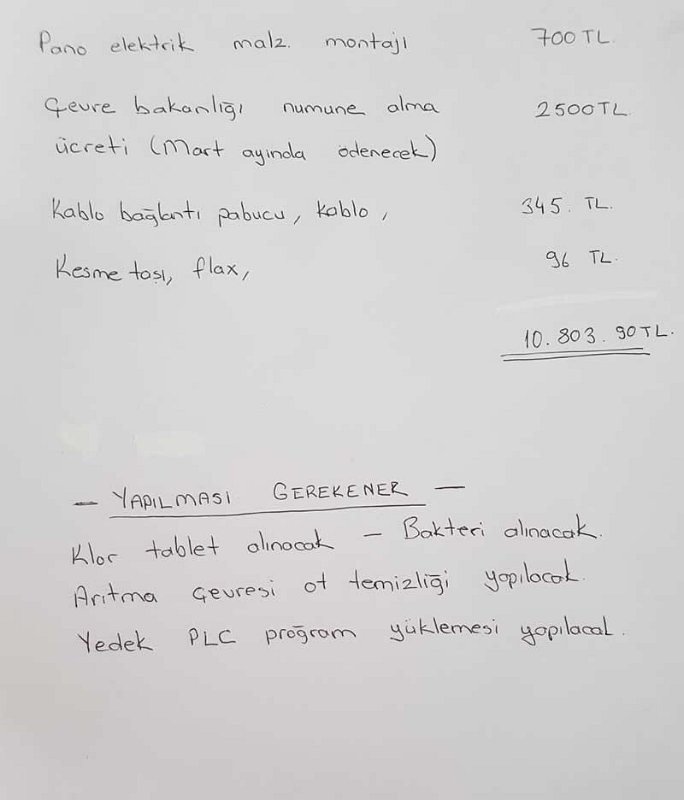 Pano elektrik malz. montajı 700 TL.
Çevre bakanlığı numune alma 2500 TL
ücreti (Mart ayında ödenecek)
Kablo bağlantı pabucu, kablo, 345. TL.
Kesme taşı, flax, 96 TL.
10.803.90 TL.
— YAPILMASI GEREKENER —
Klor tablet alınacak — Bakteri alınacak.
Arıtma çevresi ot temizliği yapılacak.
Yedek PLC proğram yüklemesi yapılacak.